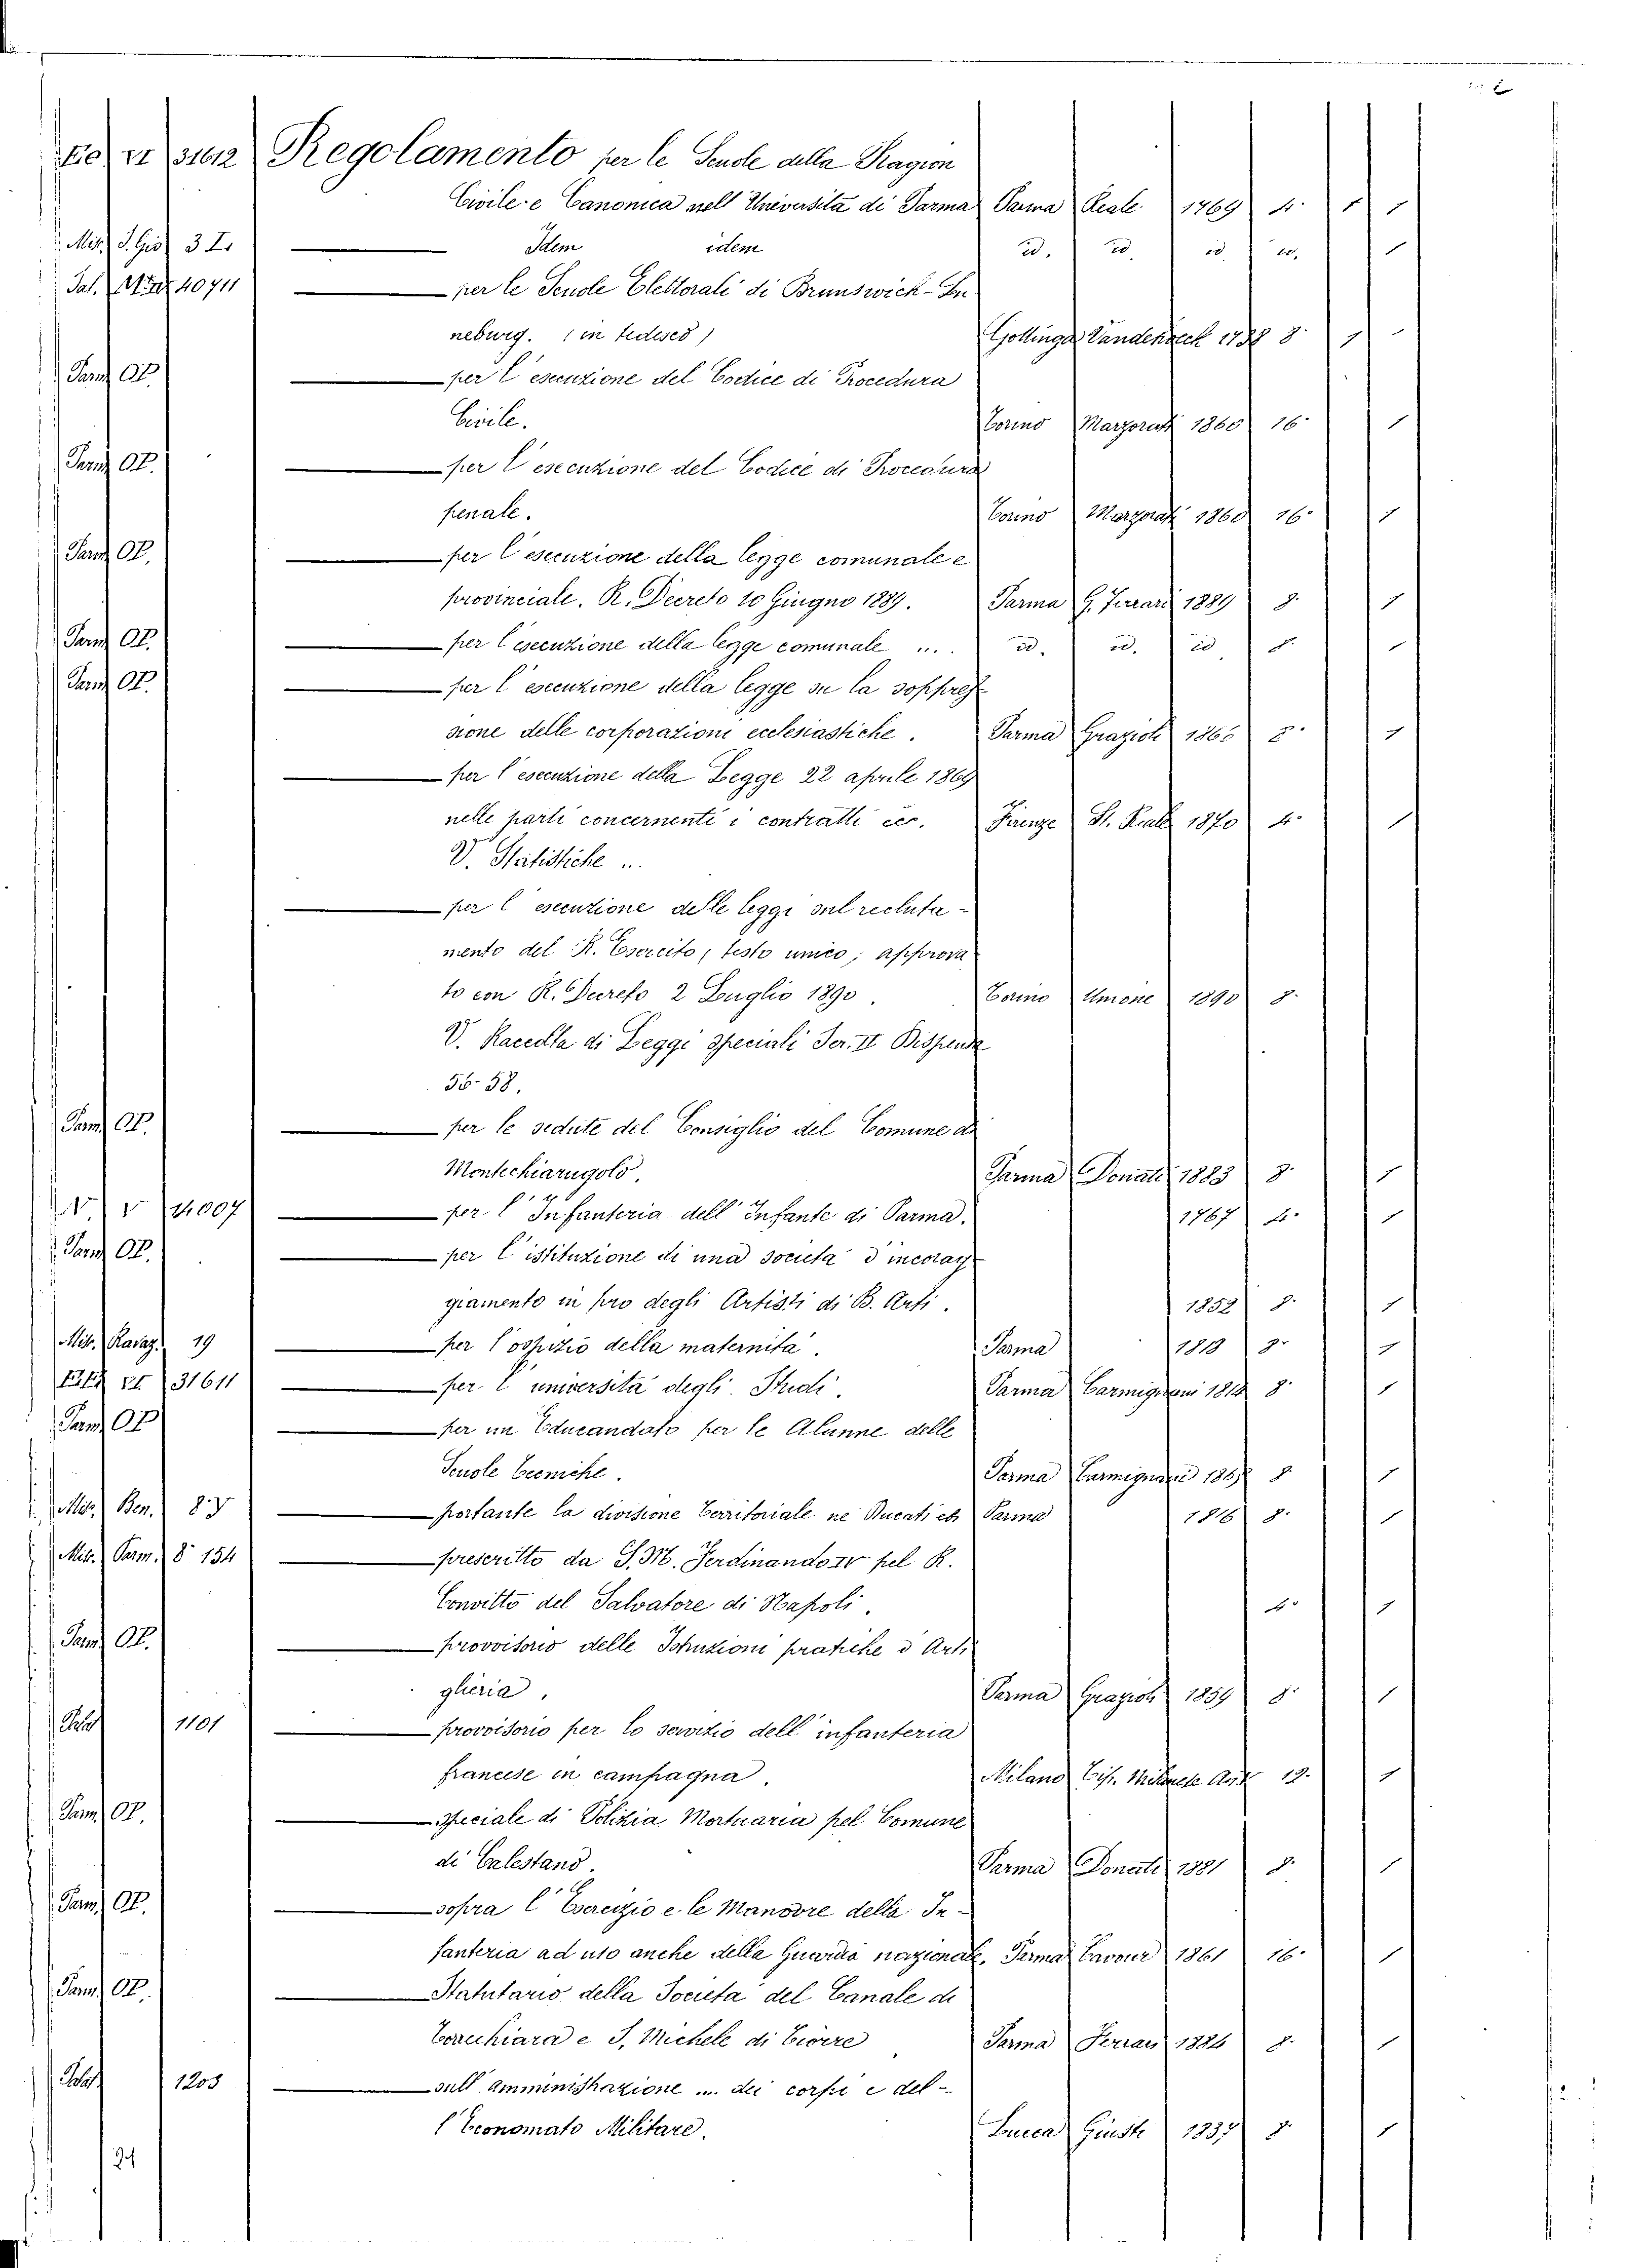 VI 31612 Regolamento per le Scuole della Ragion
Civile e Canonica nell Università di Parma Parma Reale 1769 4. 1 1
Mis. 3 I. Idem idem id. id. id. id. 1
Pal. 40711 per le Scuole Elettorali di Brunswick-
neburg. (in tedesco) Gottinga Vandenheck 8. 1
Parm OP. per l'esecuzione del Codice di Procedura
Civile. Torino Marzorati 1860 16. 1
Parm OP. per l'esecuzione del Codice di Procedura
penale. Torino Marzorati 1860 16. 1
Parm OP. per l'esecuzione della legge comunale e
provinciale. R. Decreto 10 Giugno 1889. Parma G. Ferrari 1889 8. 1
Parm OP. per l'esecuzione della legge comunale ... id. id. id. 8. 1
Parm OP. per l'esecuzione della legge su la soppres
sione delle corporazioni ecclesiastiche. Parma Grazioli 1866 8. 1
per l'esecuzione della Legge 22 aprile 1869
nelle parti concernenti i contratti ecc. Firenze St. Reale 1870 4. 1
V. Statistiche ...
per l'esecuzione delle leggi sul recluta-
mento del R. Esercito, testo unico, approva
to con R. Decreto 2 Luglio 1890. Torino Unione 1890 8.
V. Raccolta di Leggi speciali Ser. II Dispensa
56-58.
Parm OP. per le sedute del Consiglio del Comune di
Montechiarugolo. Parma Donati 1883 8. 1
V 14007 per l'Infanteria dell'Infante di Parma. 1767 4. 1
Parm OP. per l'istituzione di una società d'incorag
giamento in pro degli Artisti di B. Arti. 1852 8. 1
Mis. Ravaz. 19 per l'ospizio della maternità. Parma 1819 8. 1
31611 per l'università degli Studi. Parma Carmignani 8. 1
Parm OP per un Educandato per le Alunne delle
Scuole tecniche. Parma Carmignani 8. 1
Mis. Ben. 8.° portante la divisione Territoriale ne Ducati ecc Parma 1816 8. 1
Mis. Parm. 8.° 154 prescritto da S. M. Ferdinando IV pel R.
Convitto del Salvatore di Napoli. 4.° 1
Parm OP. provvisorio delle Istruzioni pratiche d'Arti
glieria. Parma Grazioli 1859 8. 1
Palat 1101 provvisorio per lo servizio dell'infanteria
francese in campagna. Milano 12. 1
Parm OP. speciale di Polizia Mortuaria pel Comune
di Calestano. Parma Donati 1881 8. 1
Parm OP. sopra l'Esercizio e le Manovre della In-
fanteria ad uso anche della Guardia nazionale. Parma Cavour 1861 16. 1
Parm OP. Statutario della Società del Canale di
Torrechiara e S. Michele di Tiorre Parma Ferrari 1884 8. 1
Palat 1203 sull'Amministrazione ... dei corpi e del-
l'Economato Militare. Lucca Giusti 8. 1
24